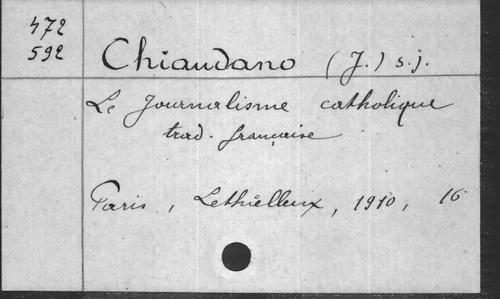 472
592
Chiaudano (J.) s.j.
Le Journalisme catholique
trad. française
Paris, Lethielleux, 1910, 16